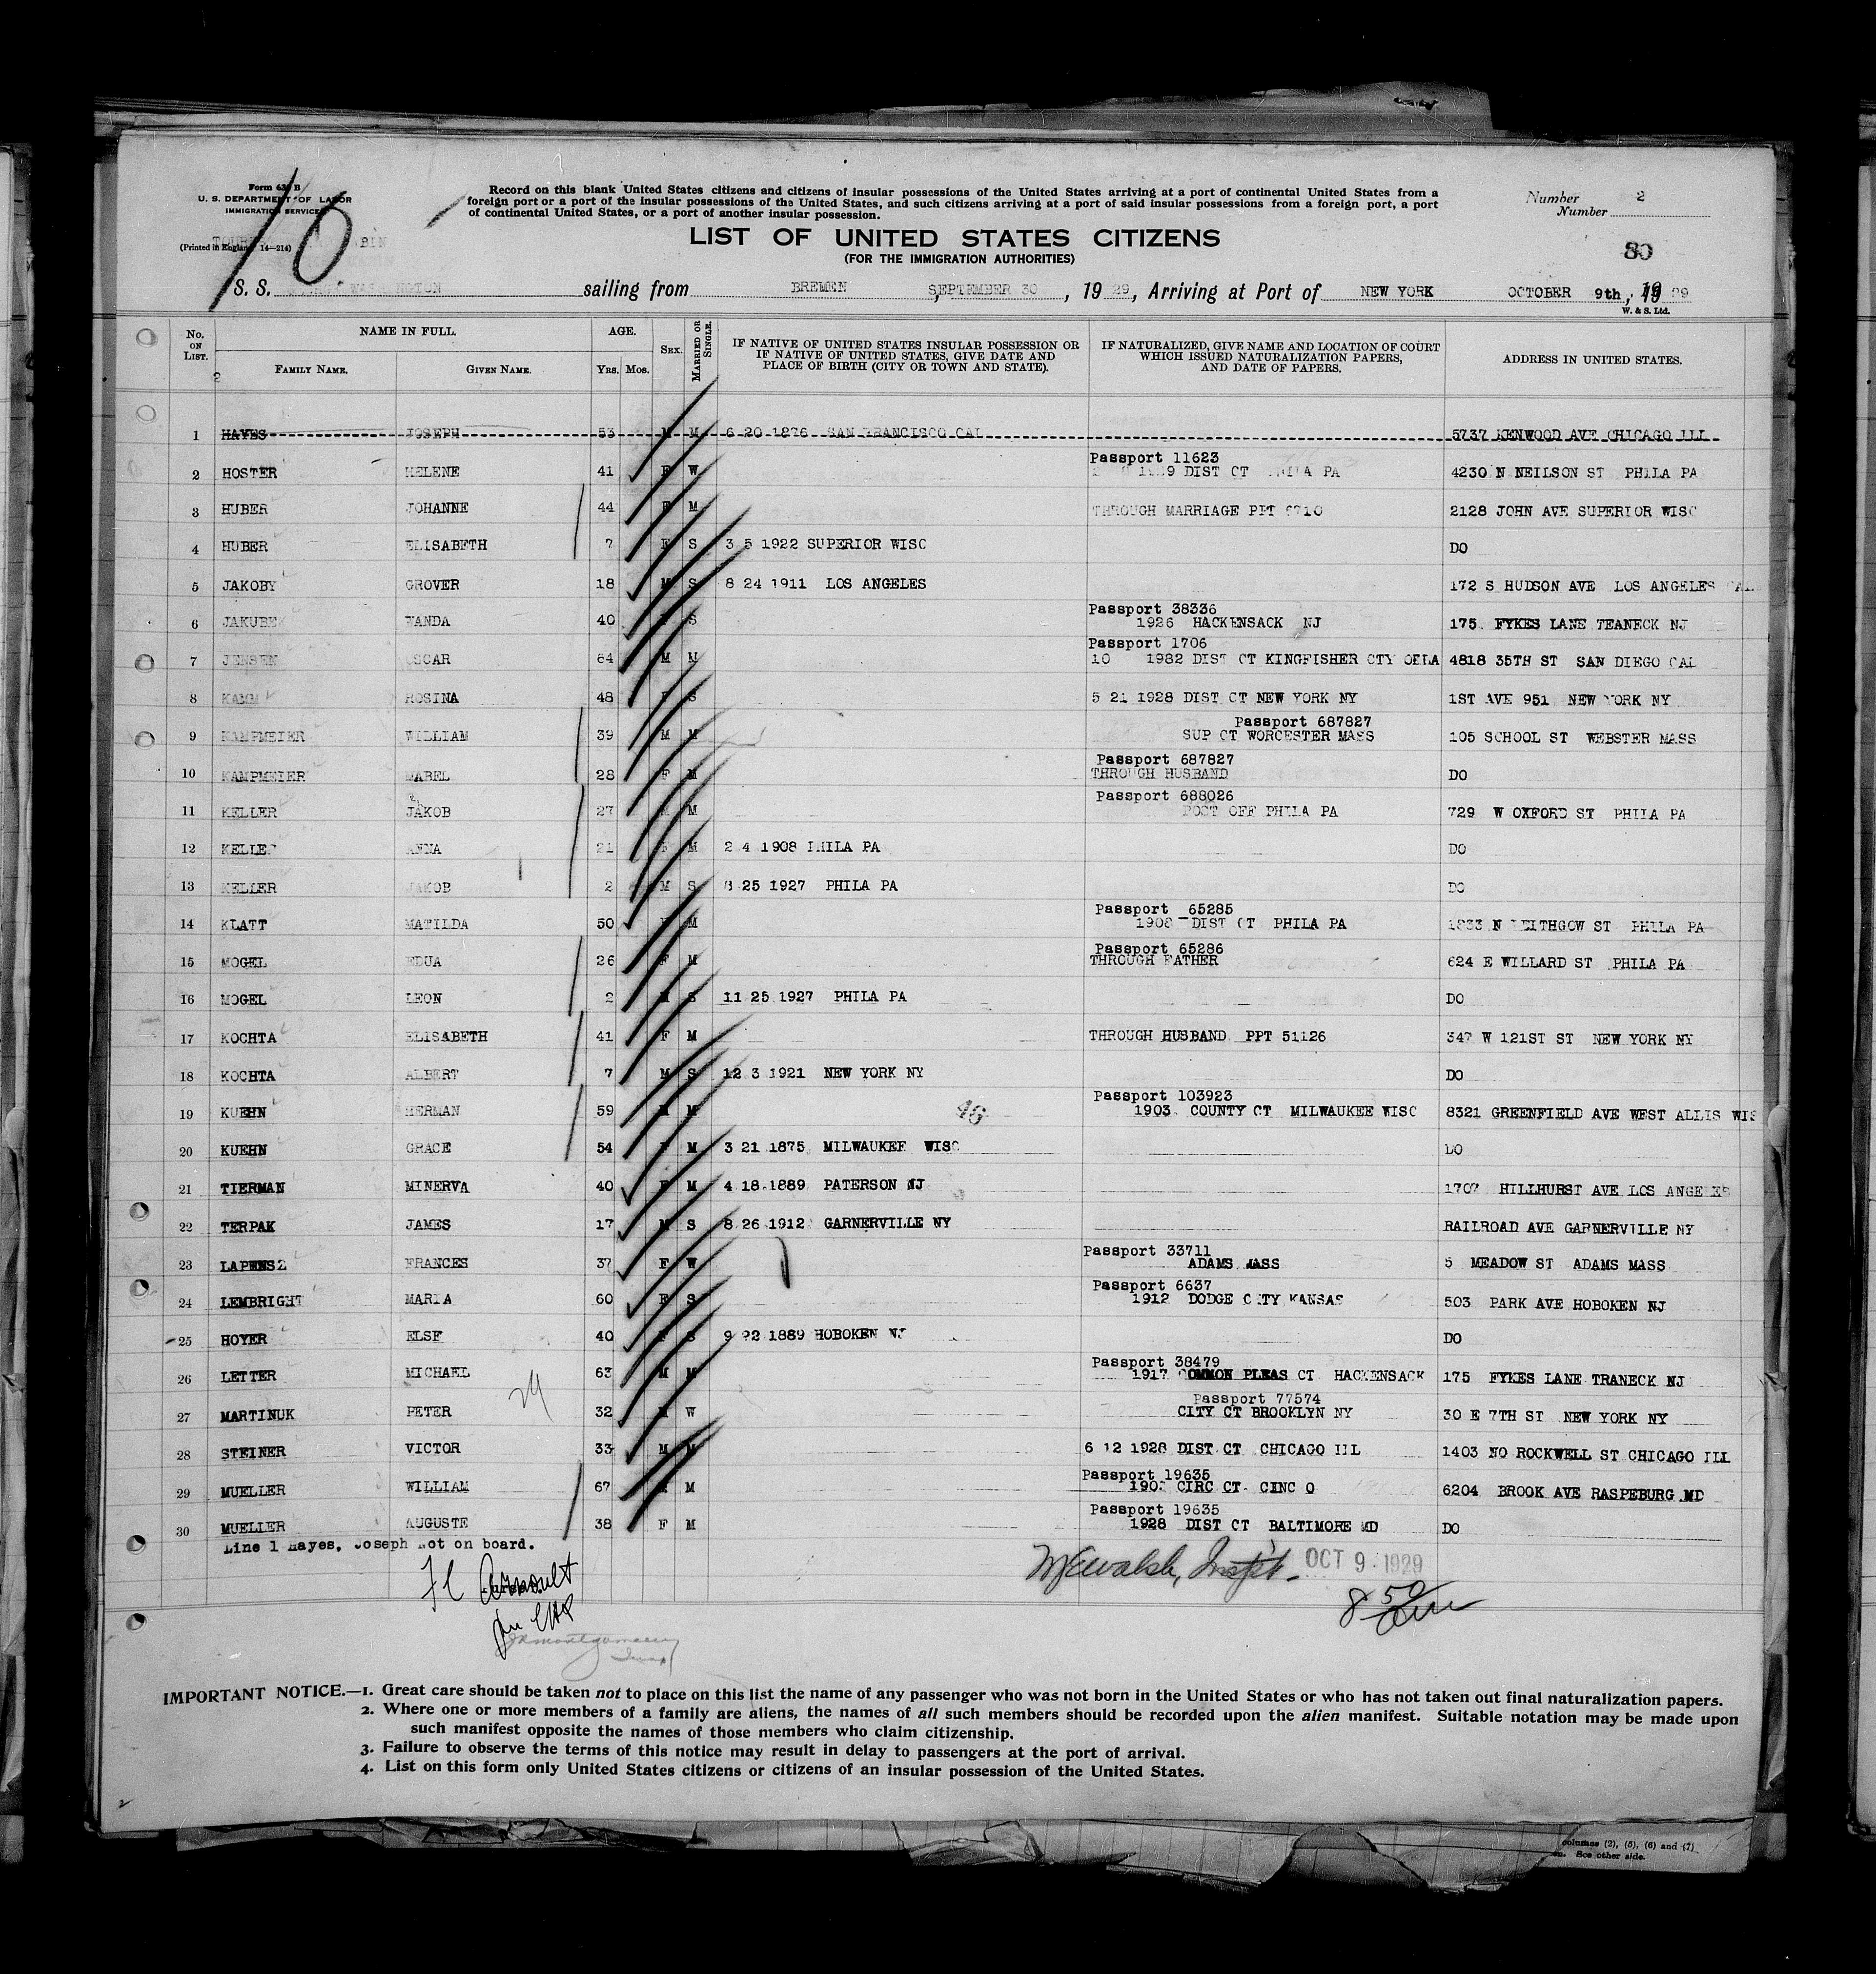 Form 630 B
U. S. DEPARTMENT OF LABOR
IMMIGRATION SERVICE
(Printed in England 14—214)
10
Record on this blank United States citizens and citizens of insular possessions of the United States arriving at a port of continental United States from a
foreign port or a port of the insular possessions of the United States, and such citizens arriving at a port of said insular possessions from a foreign port, a port
of continental United States, or a port of another insular possession.
Number 2
Number
LIST OF UNITED STATES CITIZENS
(FOR THE IMMIGRATION AUTHORITIES)
80
S. S. WASHINGTON sailing from BREMEN, SEPTEMBER 30, 1929, Arriving at Port of NEW YORK OCTOBER 9th, 1929
W. & S. Ltd.
No. ON LIST. NAME IN FULL. FAMILY NAME. GIVEN NAME. AGE. Yrs. Mos. SEX. MARRIED OR SINGLE. IF NATIVE OF UNITED STATES INSULAR POSSESSION OR IF NATIVE OF UNITED STATES, GIVE DATE AND PLACE OF BIRTH (CITY OR TOWN AND STATE). IF NATURALIZED, GIVE NAME AND LOCATION OF COURT WHICH ISSUED NATURALIZATION PAPERS, AND DATE OF PAPERS. ADDRESS IN UNITED STATES.
1 HAYES JOSEPH 53 M M 6 20 1876 SAN FRANCISCO CAL 5737 KENWOOD AVE CHICAGO ILL
Passport 11623
2 HOSTER HELENE 41 F W DIST CT PHILA PA 4230 N NEILSON ST PHILA PA
3 HUBER JOHANNE 44 F M THROUGH MARRIAGE PPT 2128 JOHN AVE SUPERIOR WISC
4 HUBER ELISABETH 7 F S 3 5 1922 SUPERIOR WISC DO
5 JAKOBY GROVER 18 M S 8 24 1911 LOS ANGELES 172 S HUDSON AVE LOS ANGELES CAL
Passport 38336
6 JAKUBE WANDA 40 F S 1926 HACKENSACK NJ 175 FYKES LANE TEANECK NJ
Passport 1706
7 JENSEN OSCAR 64 M M 10 1982 DIST CT KINGFISHER CTY OKLA 4818 35TH ST SAN DIEGO CAL
8 KAMM ROSINA 48 F S 5 21 1928 DIST CT NEW YORK NY 1ST AVE 951 NEW YORK NY
Passport 687827
9 KAMPMEIER WILLIAM 39 M M SUP CT WORCESTER MASS 105 SCHOOL ST WEBSTER MASS
Passport 687827
10 KAMPMEIER MABEL 28 F M THROUGH HUSBAND DO
Passport 688026
11 KELLER JAKOB 27 M M POST OFF PHILA PA 729 W OXFORD ST PHILA PA
12 KELLER ANNA 21 F M 2 4 1908 PHILA PA DO
13 KELLER JAKOB 2 M S 8 25 1927 PHILA PA DO
Passport 65285
14 KLATT MATILDA 50 F M 1908 DIST CT PHILA PA 1833 N LEITHGOW ST PHILA PA
Passport 65286
15 MOGEL EDUA 26 F M THROUGH FATHER 624 E WILLARD ST PHILA PA
16 MOGEL LEON 2 M S 11 25 1927 PHILA PA DO
17 KOCHTA ELISABETH 41 F M THROUGH HUSBAND PPT 51126 347 W 121ST ST NEW YORK NY
18 KOCHTA ALBERT 7 M S 12 3 1921 NEW YORK NY DO
Passport 103923
19 KUEHN HERMAN 59 M M 46 1903 COUNTY CT MILWAUKEE WISC 8321 GREENFIELD AVE WEST ALLIS WIS
20 KUEHN GRACE 54 F M 3 21 1875 MILWAUKEE WISC DO
21 TIERMAN MINERVA 40 F M 4 18 1889 PATERSON NJ 1707 HILLHURST AVE LOS ANGELES
22 TERPAK JAMES 17 M S 8 26 1912 GARNERVILLE NY RAILROAD AVE GARNERVILLE NY
Passport 33711
23 LAPENSZ FRANCES 37 F W ADAMS MASS 5 MEADOW ST ADAMS MASS
Passport 6637
24 LEMBRIGHT MARIA 60 F S 1912 DODGE CITY KANSAS 503 PARK AVE HOBOKEN NJ
25 HOYER ELSE 40 F S 9 22 1889 HOBOKEN NJ DO
Passport 38479
26 LETTER MICHAEL 63 M M 1917 COMMON PLEAS CT HACKENSACK 175 FYKES LANE TRANECK NJ
Passport 77574
27 MARTINUK PETER 32 M W CITY CT BROOKLYN NY 30 E 7TH ST NEW YORK NY
28 STEINER VICTOR 33 M M 6 12 1928 DIST CT CHICAGO ILL 1403 NO ROCKWELL ST CHICAGO ILL
Passport 19635
29 MUELLER WILLIAM 67 M M CIRC CT CINC O 6204 BROOK AVE RASPEBURG MD
Passport 19635
30 MUELLER AUGUSTE 38 F M 1928 DIST CT BALTIMORE MD DO
Line 1 Hayes, Joseph Not on board.
OCT 9 1929
8 50
IMPORTANT NOTICE.—1. Great care should be taken not to place on this list the name of any passenger who was not born in the United States or who has not taken out final naturalization papers.
2. Where one or more members of a family are aliens, the names of all such members should be recorded upon the alien manifest. Suitable notation may be made upon
such manifest opposite the names of those members who claim citizenship.
3. Failure to observe the terms of this notice may result in delay to passengers at the port of arrival.
4. List on this form only United States citizens or citizens of an insular possession of the United States.
columns (2), (5), (6) and (7)
See other side.